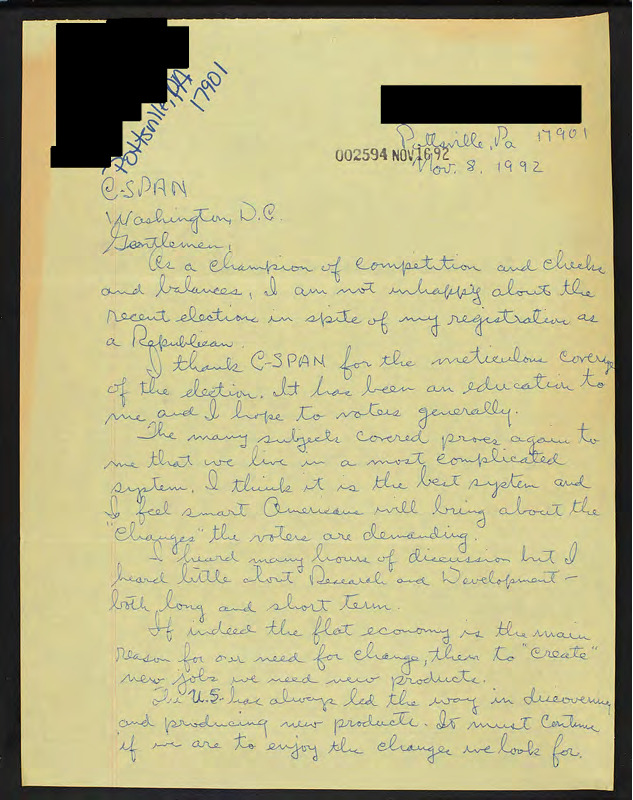 Pottsville, PA
17901
Pottsville, Pa 17901
002594 NOV16 92
Nov. 8, 1992
C-SPAN
Washington, D.C.
Gentlemen,
As a champion of competition and checks
and balances, I am not unhappy about the
recent election in spite of my registration as
a Republican.
I thank C-SPAN for the meticulous coverage
of the election. It has been an education to
me and I hope to voters generally.
The many subjects covered proves again to
me that we live in a most complicated
system. I think it is the best system and
I feel smart Americans will bring about the
"changes" the voters are demanding.
I heard many hours of discussion but I
heard little about Research and Development –
both long and short term.
If indeed the flat economy is the main
reason for our need for change, then to "create"
new jobs we need new products.
The U.S. has always led the way in discovering
and producing new products. It must continue
if we are to enjoy the changes we look for.